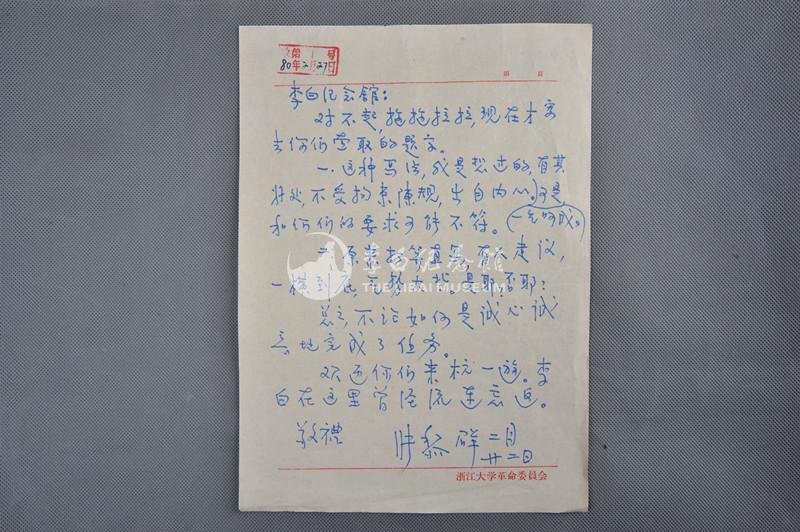 第1号
80年2月27日
第 页
李白纪念馆:
对不起,拖拖拉拉,现在才寄
去你们索取的题字。
一.这种写法,我是想过的,有其
好处,不受拘束陈规,出自内心。可是
和你们的要求可能不符。(一气呵成。)
二.原素描等真笔,有人建议,
一横到底,气势大些。是耶?否耶?
总之,不论如何是诚心诚
意地完成了任务。
欢迎你们来杭一游。李
白在这里曾经流连忘返。
敬禮
二月
廿二日
李白纪念館
THE LIBAI MUSEUM
浙江大学革命委員会